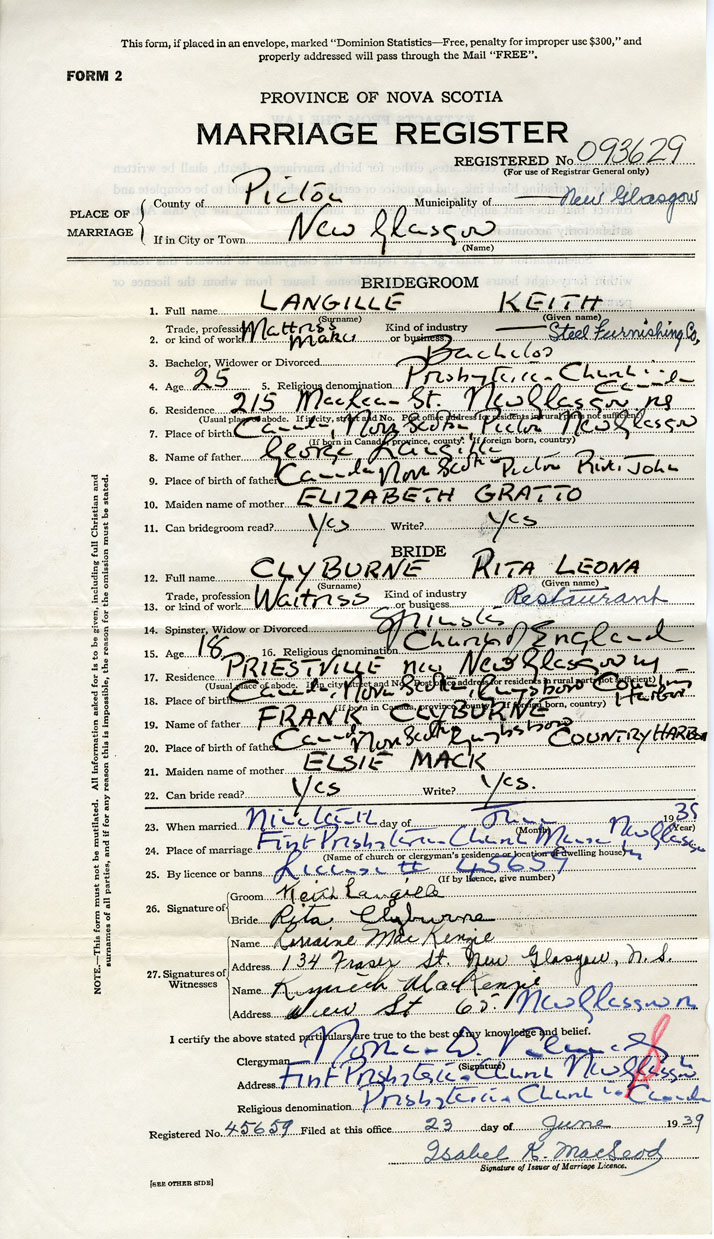 This form, if placed in an envelope, marked "Dominion Statistics—Free, penalty for improper use $300," and
properly addressed will pass through the Mail "FREE".
FORM 2
PROVINCE OF NOVA SCOTIA
MARRIAGE REGISTER
REGISTERED No. 093629
(For use of Registrar General only)
PLACE OF MARRIAGE
County of Pictou Municipality of New Glasgow
If in City or Town New Glasgow
(Name)
BRIDEGROOM
1. Full name LANGILLE KEITH
(Surname) (Given name)
2. Trade, profession or kind of work Mattress Maker Kind of industry or business Steel Furnishing Co.
3. Bachelor, Widower or Divorced Bachelor
4. Age 25 5. Religious denomination Presbyterian Church in Canada
6. Residence 215 MacLean St. New Glasgow NS
(Usual place of abode. If in city, street and No. Post office address for residents in rural parts not sufficient)
7. Place of birth Canada, Nova Scotia Pictou New Glasgow
(If born in Canada, province, county. If foreign born, country)
8. Name of father George Langille
9. Place of birth of father Canada Nova Scotia Pictou River John
10. Maiden name of mother ELIZABETH GRATTO
11. Can bridegroom read? Yes Write? Yes
BRIDE
12. Full name CLYBURNE RITA LEONA
(Surname) (Given name)
13. Trade, profession or kind of work Waitress Kind of industry or business Restaurant
14. Spinster, Widow or Divorced Spinster
15. Age 18 16. Religious denomination Church of England
17. Residence PRIESTVILLE near New Glasgow
(Usual place of abode. If in city street and No. Post office address or residents in rural parts not sufficient)
18. Place of birth Canada, Nova Scotia, Guysboro Country Harbor
(If born in Canada, province, county. If foreign born, country)
19. Name of father FRANK CLYBURNE
20. Place of birth of father Canada Nova Scotia Guysboro COUNTRY HARBOR
21. Maiden name of mother ELSIE MACK
22. Can bride read? Yes Write? Yes.
23. When married Nineteenth day of June 1939
(Month) (Year)
24. Place of marriage First Presbyterian Church Manse New Glasgow
(Name of church or clergyman's residence or location of dwelling house)
25. By licence or banns License # 45659
(If by licence, give number)
26. Signature of
Groom Keith Langille
Bride Rita Clyburne
27. Signatures of Witnesses
Name Lorraine MacKenzie
Address 134 Fraser St. New Glasgow, N.S.
Name Kenneth MacKenzie
Address View St 65. New Glasgow
I certify the above stated particulars are true to the best of my knowledge and belief.
Clergyman Norman D.
(Signature)
Address First Presbyterian Church New Glasgow
Religious denomination Presbyterian Church in Canada
Registered No. 45659 Filed at this office 23 day of June 1939
Isabel K. MacLeod
Signature of Issuer of Marriage Licence.
[SEE OTHER SIDE]
NOTE.—This form must not be mutilated. All information asked for is to be given, including full Christian and
surnames of all parties, and if for any reason this is impossible, the reason for the omission must be stated.